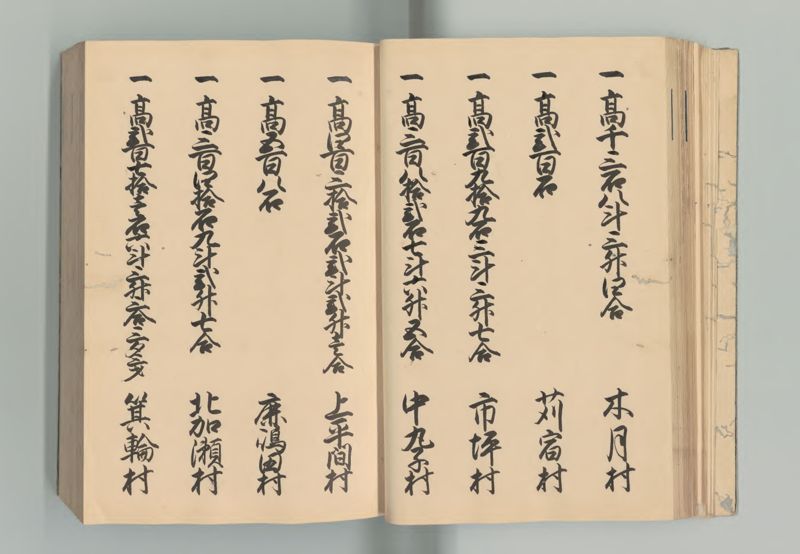 一 高千三石八斗三升四合 木月村
一 高弐百石 苅宿村
一 高弐百九拾九石三斗三升七合 市坪村
一 高三百八拾弐石七斗六升五合 中丸子村
一 高四百三拾弐石弐斗弐升壱合 上平間村
一 高五百八石 鹿嶋田村
一 高三百四拾石九斗弐升七合 北加瀬村
一 高弐百七拾壱石六斗三升 箕輪村